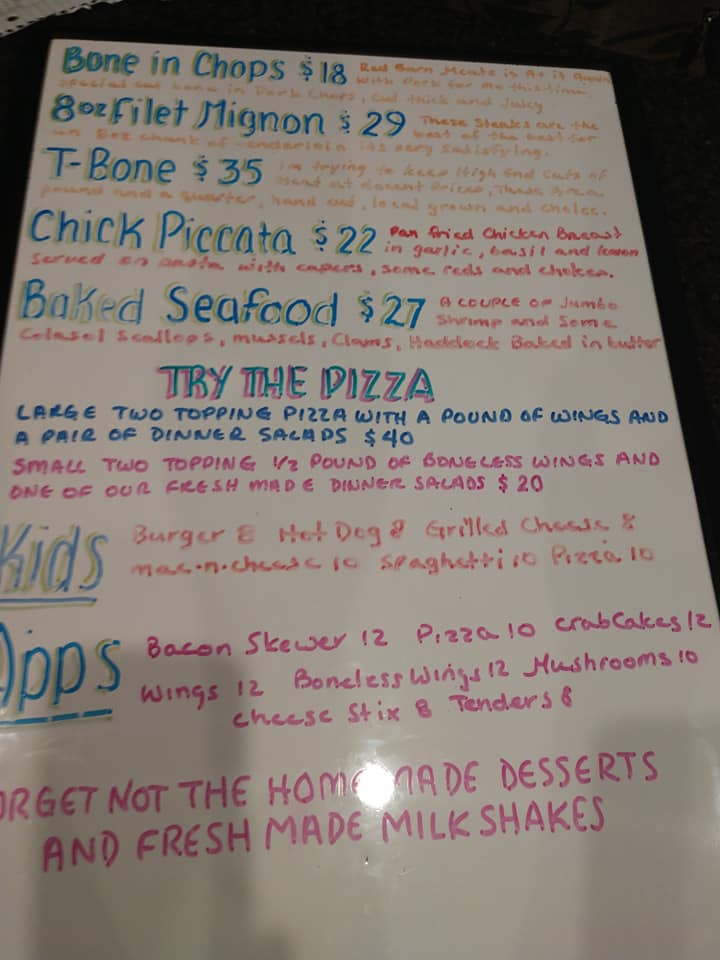 Bone in Chops $18 Red Barn Meats is At it Again
with Pork for me this time.
Special cut bone in Pork Chops, cut thick and Juicy
8oz Filet Mignon $29 These Steaks are the
best of the best for
an 8oz chunk of tenderloin its very Satisfying.
T-Bone $35 I'm trying to keep High End cuts of
Meat at decent Prices, These Are a
pound and a quarter, hand cut, local grown and choice.
Chick Piccata $22 Pan fried Chicken Breast
in garlic, basil and lemon
served on pasta with capers, some reds and choken.
Baked Seafood $27 A COUPLE OF Jumbo
Shrimp and Some
Colasol Scallops, mussels, Clams, Haddock Baked in butter
TRY THE PIZZA
LARGE TWO TOPPING PIZZA WITH A POUND OF WINGS AND
A PAIR OF DINNER SALADS $40
SMALL TWO TOPPING 1/2 POUND OF BONELESS WINGS AND
ONE OF OUR FRESH MADE DINNER SALADS $20
Kids Burger 8 Hot Dog 8 Grilled Cheese 8
mac.n.cheese 10 Spaghetti 10 Pizza 10
Apps Bacon Skewer 12 Pizza 10 crabCakes 12
Wings 12 Boneless Wings 12 Mushrooms 10
cheese Stix 8 Tenders 8
ORGET NOT THE HOMEMADE DESSERTS
AND FRESH MADE MILKSHAKES